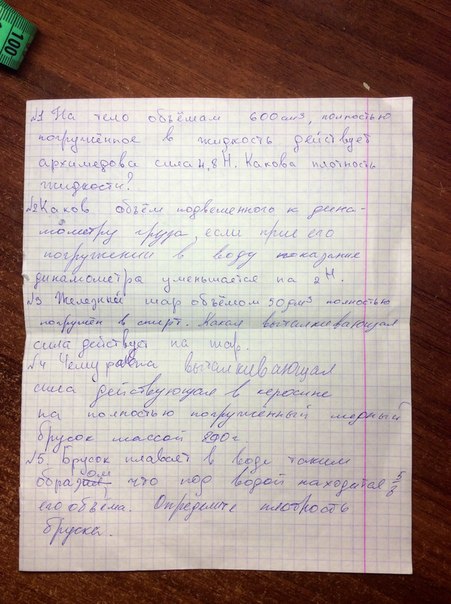 100
№1 На тело объёмам 600 см³, полностью
погружённое в жидкость действует
архимедова сила 4,8 Н. Какова плотность
жидкости?
№2 Каков объём подвешенного к дина-
мометру груза, если при его
погружении в воду показание
динамометра уменьшается на 2 Н.
№3 Железный шар объёмом 50 дм³ полностью
погружён в спирт. Какая выталкивающая
сила действует на шар.
№4 Чему равна выталкивающая
сила действующая в керосине
на полностью погруженный медный
брусок массой 890 г.
№5 Брусок плавает в воде таким
образом что под водой находится 5/6
его объёма. Определите плотность
бруска.